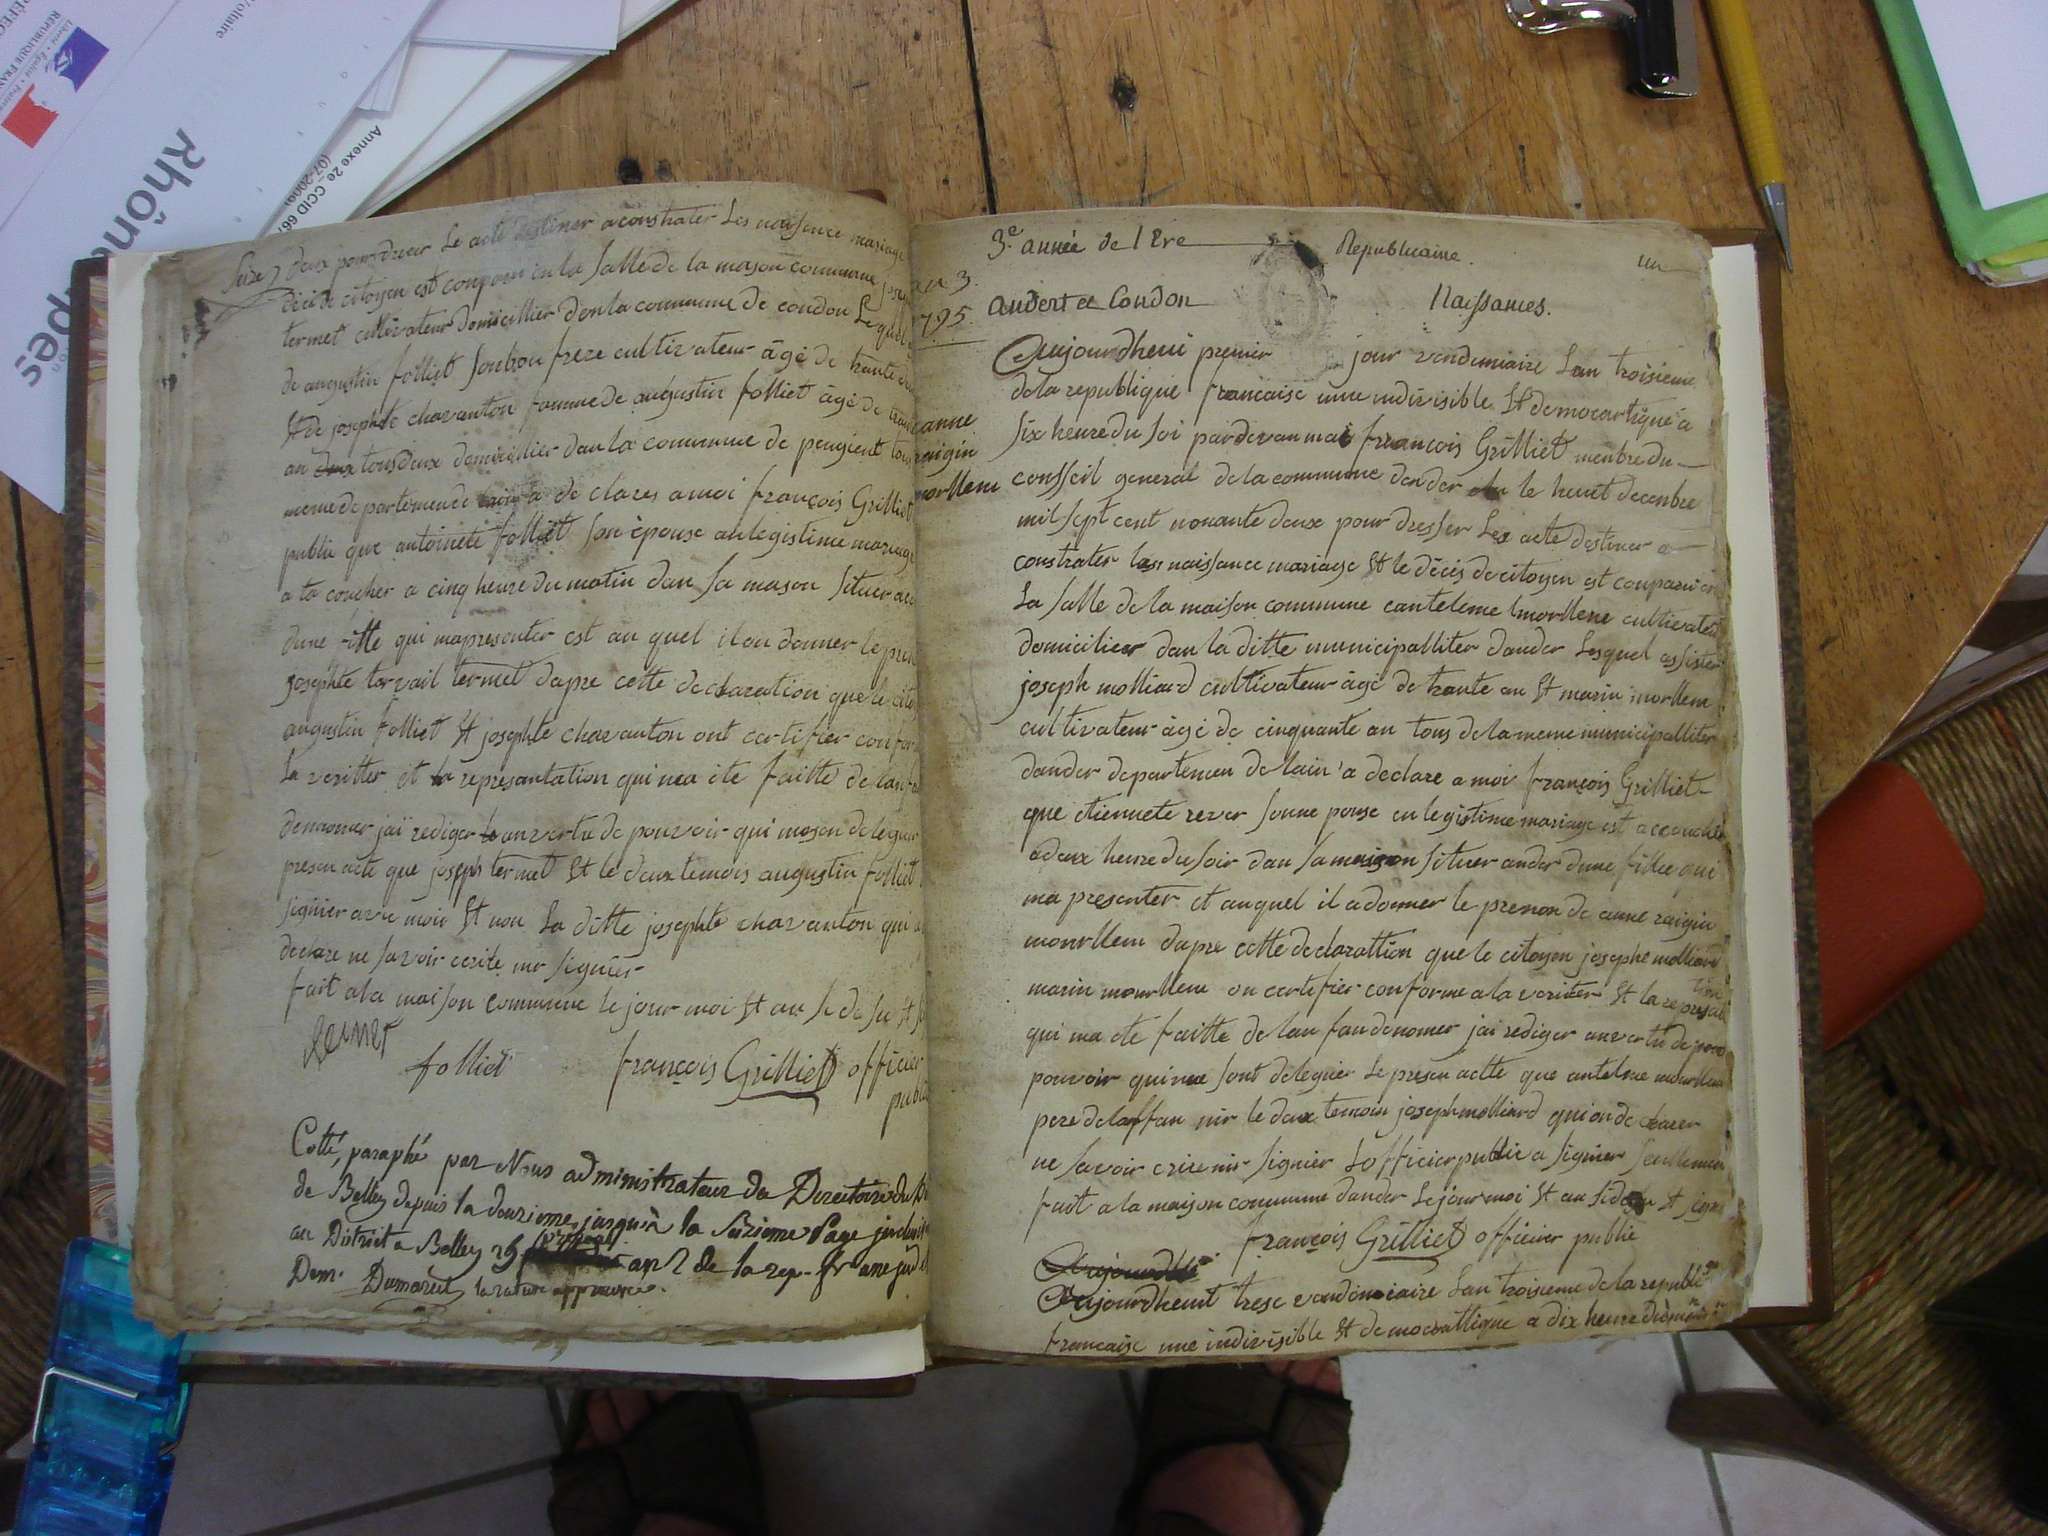 RÉPUBLIQUE FRAN
Rhône
lpes
Annexe 2e CCID 66
Seize
deux pour dreser Le acte destiner a constrater Les naissance mariage
décè de citoyen est conparu en la Salle de la mason commune
termet cultivateur domicillier den la commune de condon Lequel
de augustin folliet Son bou frere cultivateur âgé de trante
St de josephte chavanton famme de augustin folliet âgé de
an tous deux domicilier dan la commune de peugient tous
meme departemen de a de clares a moi françois Grilliet
public que antoinete folliet Son épouse an legistime mariage
a ta coucher a cinq heure du matin dan sa mason situer
dune fille qui ma presenter est au quel il on donner le
josephte termet dapre cette declaration que le
augustin folliet St josephte chavanton ont certifier
La veritter et la representation qui ma ete faitte de
denomer jai rediger anvertu de pouvoir qui mason deleguer
presen acte que joseph termet St le deux temois augustin folliet
signier ave moi St non La ditte josephte chavanton qui a
declare ne savoir ecrite ni signier
fait a la maison commune le jour moi St an
termet
folliet françois Grilliet officier
public
Cotté, paraphé par Nous administrateur du Directoire du
de Belley depuis la deuxieme jusqu'à la Seizieme Page
au District a Belley 25 an 2 de la rep. fr ane
Dumarest la rature approuvée.
an 3.
1795.
anne
raigin
morllem
3.e année de l Ere Republicaine. un
andert et Condon Naissances.
Aujourdheui premier jour vendemiaire Lan troisieme
de la republique francaise unne indivisible St democratique a
six heure du soi pardevan moi françois Grilliet menbre du
consseil general de la commune dander elu le heuit decenbre
mil sept cent nonante deux pour dresser Les acte destiner a
constrater les naissance mariage St le décès de citoyen est conparu en
La salle de la maison commune cantelème morllene cultivateu
domicilier dan la ditte municipalliter dander Lesquel assister
joseph molliard cultivateur âgé de trante an St marin morllem
cultivateur âgé de cinquante an tous de la meme municipalliter
dander departemen de lain a declare a moi françois Grilliet
que etiennete rever sonne ponse en legistime mariage est accouchér
a deux heure du soir dan sa maison situer ander dune fillie qui
ma presenter et au quel il a donner le prenon de anne raigin
mourllem dapre cette declarattion que le citoyen josephe molliard
marin mourllem on certifier conforme a la veriter St la represanttion
qui ma ete faitte de lan fan denomer jai rediger anvertu de
pouvoir qui me sont deleguer Le presen actte que antelme mourllem
pere de laffan nir le deux temoin joseph molliard qui on de clarer
ne savoir crire nir signier Lofficier public a signier seullemen
fait a la maison commune dander Le jour moi St an
françois Grilliet officier public
Aujourdheuit trese vendemiaire Lan troisieme de la republique
francaise une indivisible St democrattique a dix heure